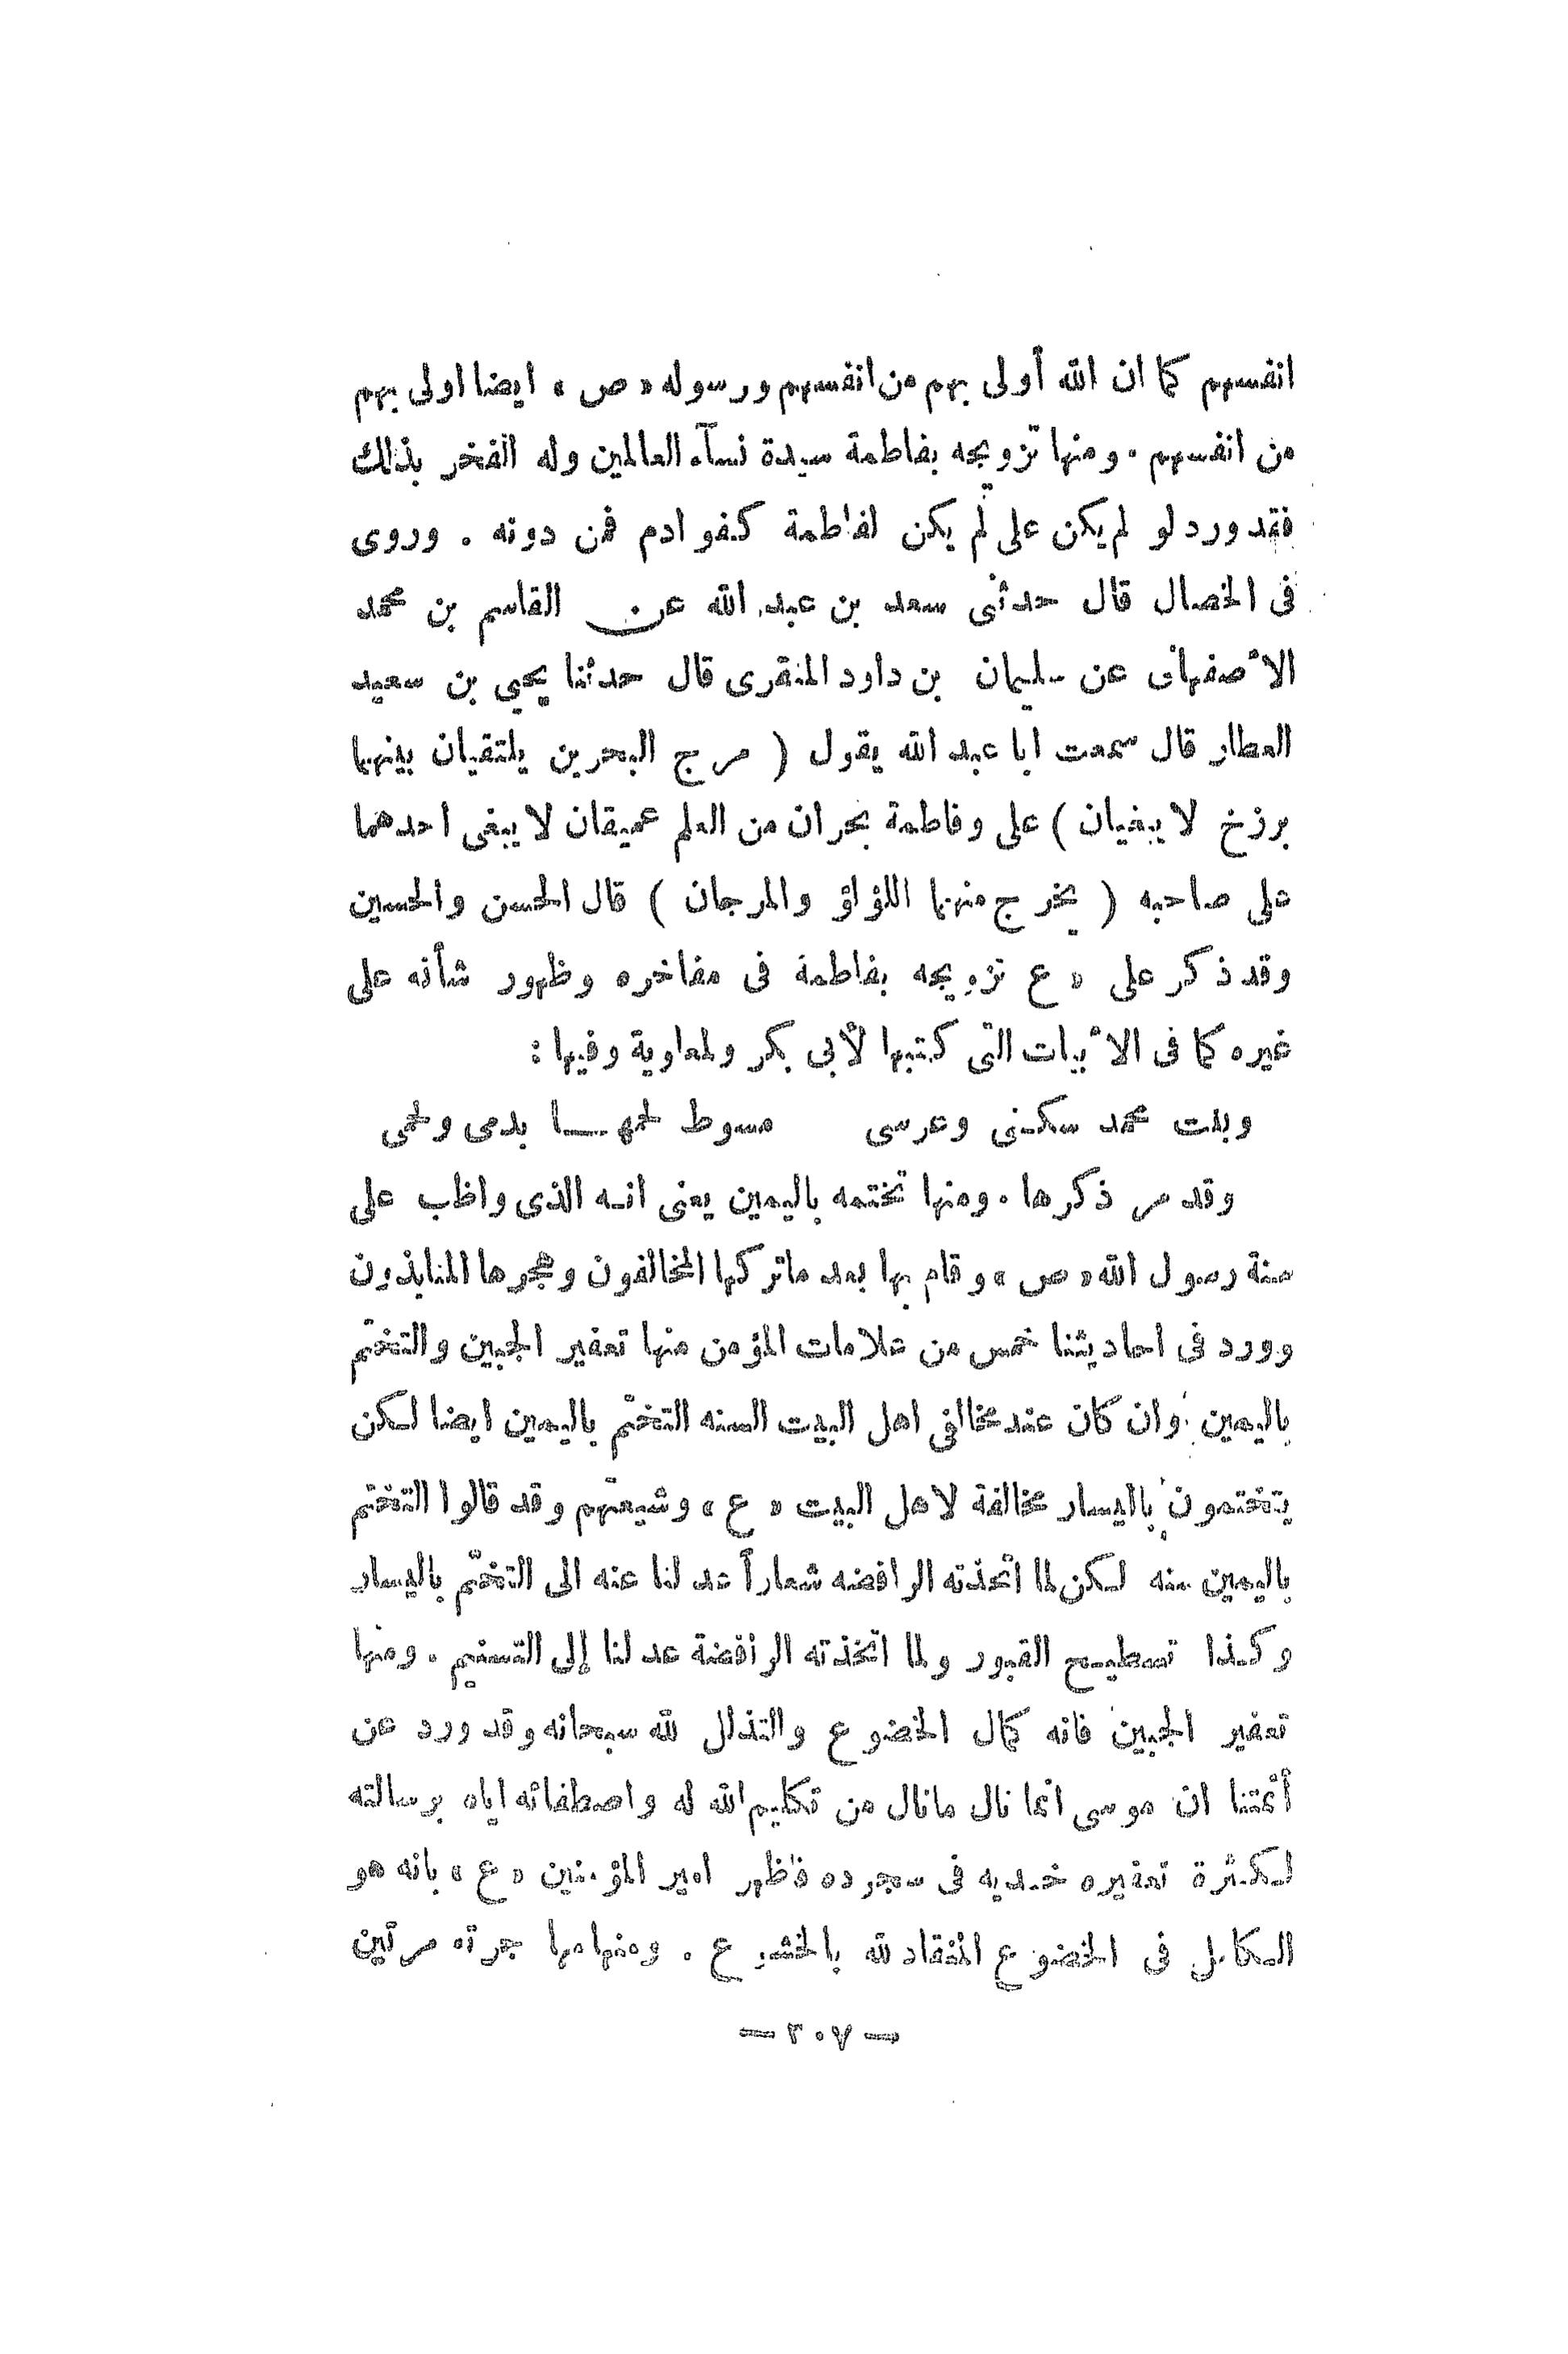 انفسهم كما ان الله أولى بهم من انفسهم ورسوله « ص » ايضا اولى بهم
من انفسهم . ومنها تزويجه بفاطمة سيدة نسآء العالمين وله الفخر بذلك
فقد ورد لو لم يكن على لم يكن لفاطمة كفو ادم فمن دونه . وروى
فى الخصال قال حدثنى سعد بن عبد الله عن القاسم بن محمد
الأصفهانى عن سليمان بن داود المنقرى قال حدثنا يحيى بن سعيد
العطار قال سمعت ابا عبد الله يقول ( مرج البحرين يلتقيان بينهما
برزخ لا يبغيان ) على وفاطمة بحران من العلم عميقان لا يبغى احدهما
على صاحبه ( يخرج منهما اللؤلؤ والمرجان ) قال الحسن والحسين
وقد ذكر على « ع تزويجه بفاطمة فى مفاخره وظهور شأنه على
غيره كما فى الأبيات التى كتبها لأبى بكر ولمعاوية وفيها :
وبنت محمد سكنى وعرسى مسوط لحمها بدمى ولحمى
وقد مر ذكرها . ومنها تختمه باليمين يعنى انه الذى واظب على
سنة رسول الله « ص » وقام بها بعد ماتركها المخالفون وهجرها المنابذون
وورد فى احاديثنا خمس من علامات المؤمن منها تعفير الجبين والتختم
باليمين وان كان عند مخالفى اهل البيت السنه التختم باليمين ايضا لكن
يتختمون باليسار مخالفة لاهل البيت « ع » وشيعتهم وقد قالوا التختم
باليمين سنه لكن لما اتخذته الرافضه شعاراً عدلنا عنه الى التختم باليسار
وكذا تسطيح القبور ولما اتخذته الرافضة عدلنا إلى التسنيم . ومنها
تعفير الجبين فانه كمال الخضوع والتذلل لله سبحانه وقد ورد عن
أئمتنا ان موسى انما نال مانال من تكليم الله له واصطفائه اياه برسالته
لكثرة تعفيره خديه فى سجوده فاظهر امير المؤمنين « ع » بانه هو
الكامل فى الخضوع المنقاد لله بالخشوع . ومنها مهاجرته مرتين
— ٣٠٧ —